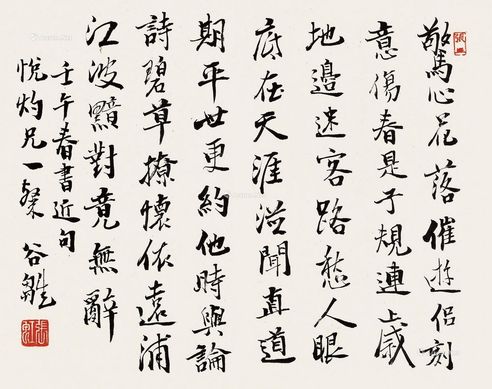 驚心花落催遊侶刻
意傷春是子規連歲
地邊迷客路愁人眼
底在天涯溢聞直道
期平世更約他時與論
詩碧草撩懷依遠浦
江波黯對竟無辭
壬午春書近句
悅灼兄一粲 谷雛
張虹